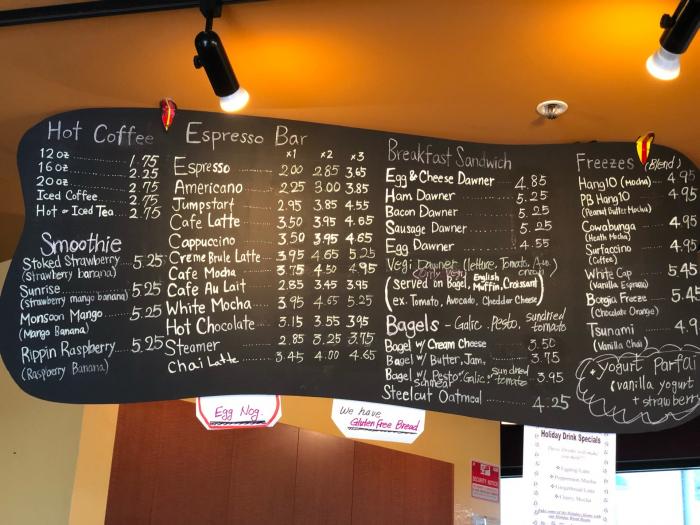 Hot Coffee
12 oz 1.75
16 oz 2.25
20 oz 2.75
Iced Coffee 2.75
Hot - Iced Tea 2.75
Smoothie
Stoked Strawberry 5.25
(Strawberry banana)
Sunrise 5.25
(Strawberry mango banana)
Monsoon Mango 5.25
(Mango Banana)
Rippin Raspberry 5.25
(Raspberry Banana)
Espresso Bar
x1 x2 x3
Espresso 2.00 2.85 3.65
Americano 2.25 3.00 3.85
Jumpstart 2.95 3.85 4.55
Cafe Latte 3.50 3.95 4.65
Cappuccino 3.50 3.95 4.65
Creme Brule Latte 3.95 4.65 5.25
Cafe Mocha 3.75 4.50 4.95
Cafe Au Lait 2.85 3.45 3.95
White Mocha 3.95 4.65 5.25
Hot Chocolate 3.15 3.55 3.95
Steamer 2.85 3.25 3.75
Chai Latte 3.45 4.00 4.65
Breakfast Sandwich
Egg & Cheese Dawner 4.85
Ham Dawner 5.25
Bacon Dawner 5.25
Sausage Dawner 5.25
Egg Dawner 4.55
Vegi Dawner (letture, Tomato, Avo.
(served on Bagel, English Muffin, Croissant)
ex. Tomato, Avocado, Chedder Cheese)
Bagels - Galic, Pesto, sundried tomato
Bagel w/ Cream Cheese 3.50
Bagel w/ Butter, Jam, 3.75
Bagel w/ "Pesto" "Galic" "sun dried tomato 3.95
Steelcut Oatmeal 4.25
Freezes (Blend)
Hang10 (Mocha) 4.95
PB Hang10 4.95
(Peanut Butter Mocha)
Cowabunga 4.95
(Heath Mocha)
Surfaccino 4.95
(Coffee)
White Cap 5.45
(Vanilla Espresso)
Borgia Freeze 5.45
(Chocolate Orange)
Tsunami 4.9
(Vanilla Chai)
+ yogurt Parfai
(vanilla yogurt
+ strawberr
Egg Nog.
We have
Gluten Free Bread
Holiday Drink Specials
Eggnog Latte
Peppermint Mocha
Gingerbread Latte
Cherry Mocha
SECURITY NOTICE